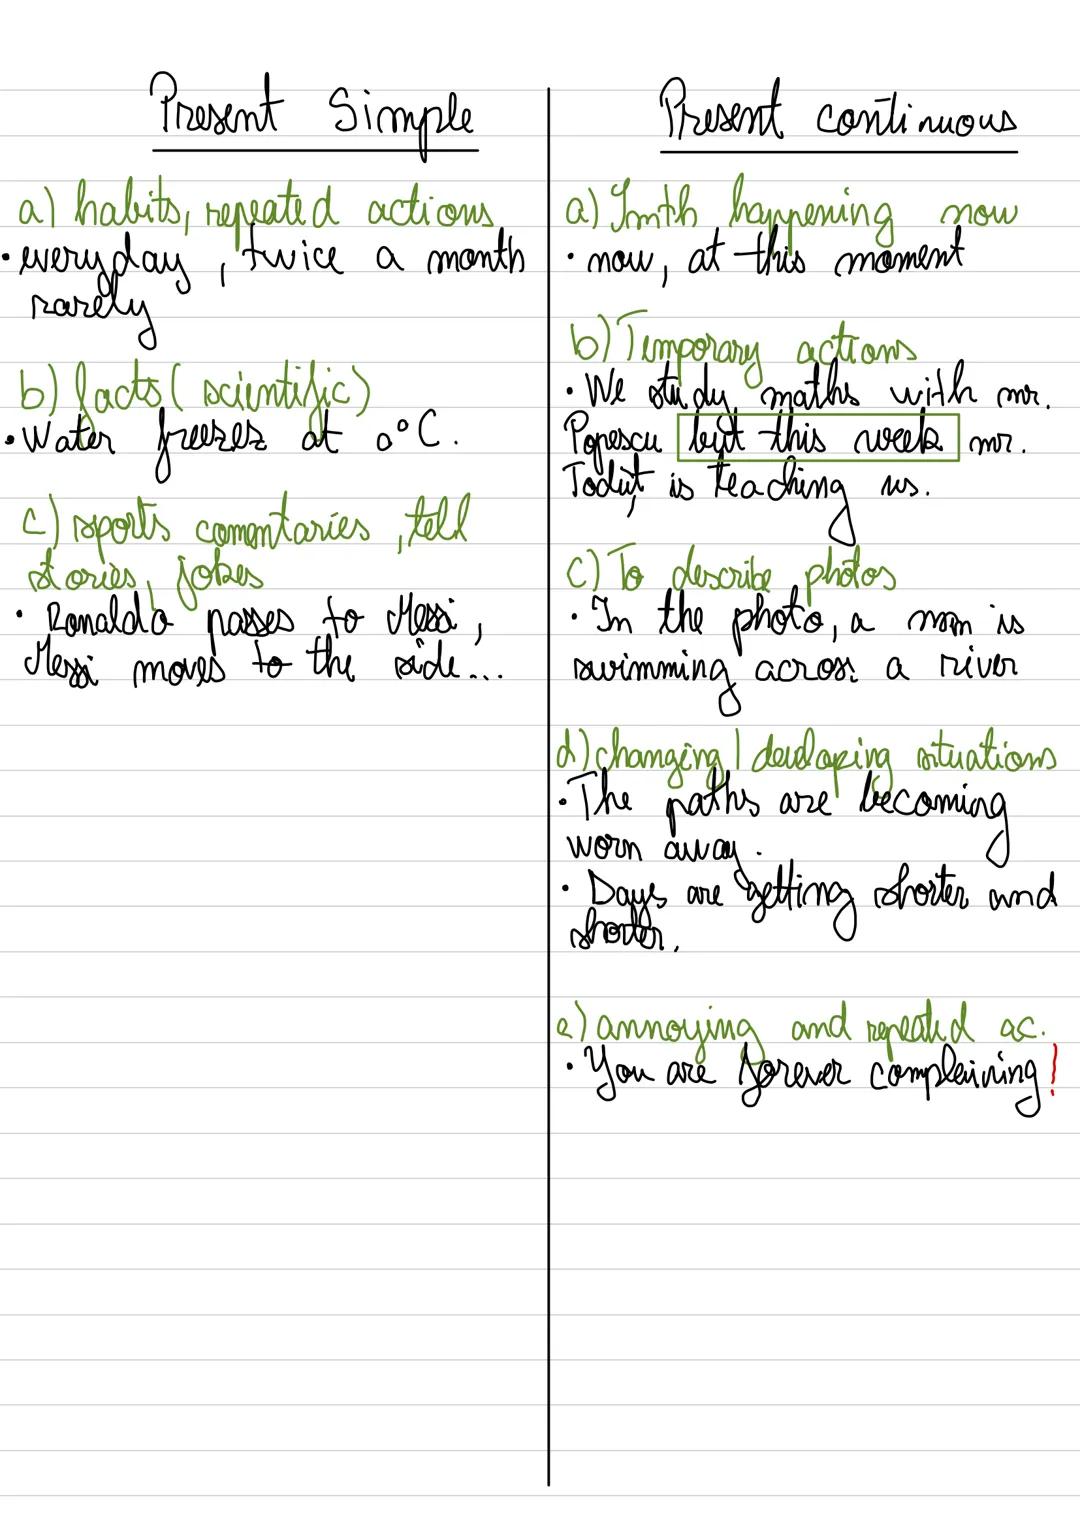 Present Simple
a) habits, repeated actions
• everyday, twice a month
rarely
b) facts (scientific)
• Water freezez at 0°C.
c) sports comentaries, tell
stories, jokes
• Ronaldo passes to Messi,
Messi moves to the side...
Present continuous
a) Smth happening now
• now, at this moment
b) Temporary actions
• We study maths with mr.
Popescu but this week mr.
Toduț is teaching us.
c) To describe photos
• In the photo, a man is
swimming across a river
d) changing / developing situations
• The paths are becoming
worn away.
• Days are getting shorter and
shorter.
e) annoying and repeated ac.
• You are forever complaining!